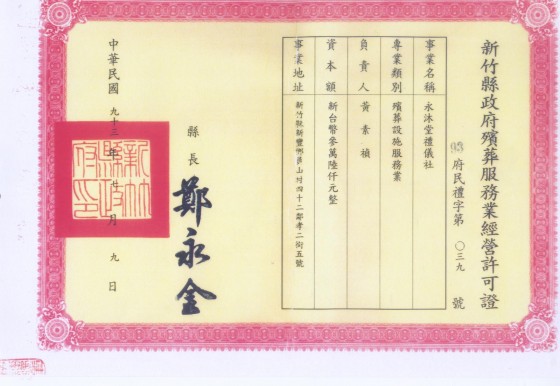 新竹縣政府殯葬服務業經營許可證
93府民禮字第〇三九號
事業名稱 永沐堂禮儀社
專業類別 殯葬設施服務業
負責人 黃素禎
資本額 新台幣參萬陸仟元整
事業地址 新竹縣新豐鄉員山村四十二鄰孝二街五號
縣長 鄭永金
新竹縣政府印
中華民國九十三年 月九日